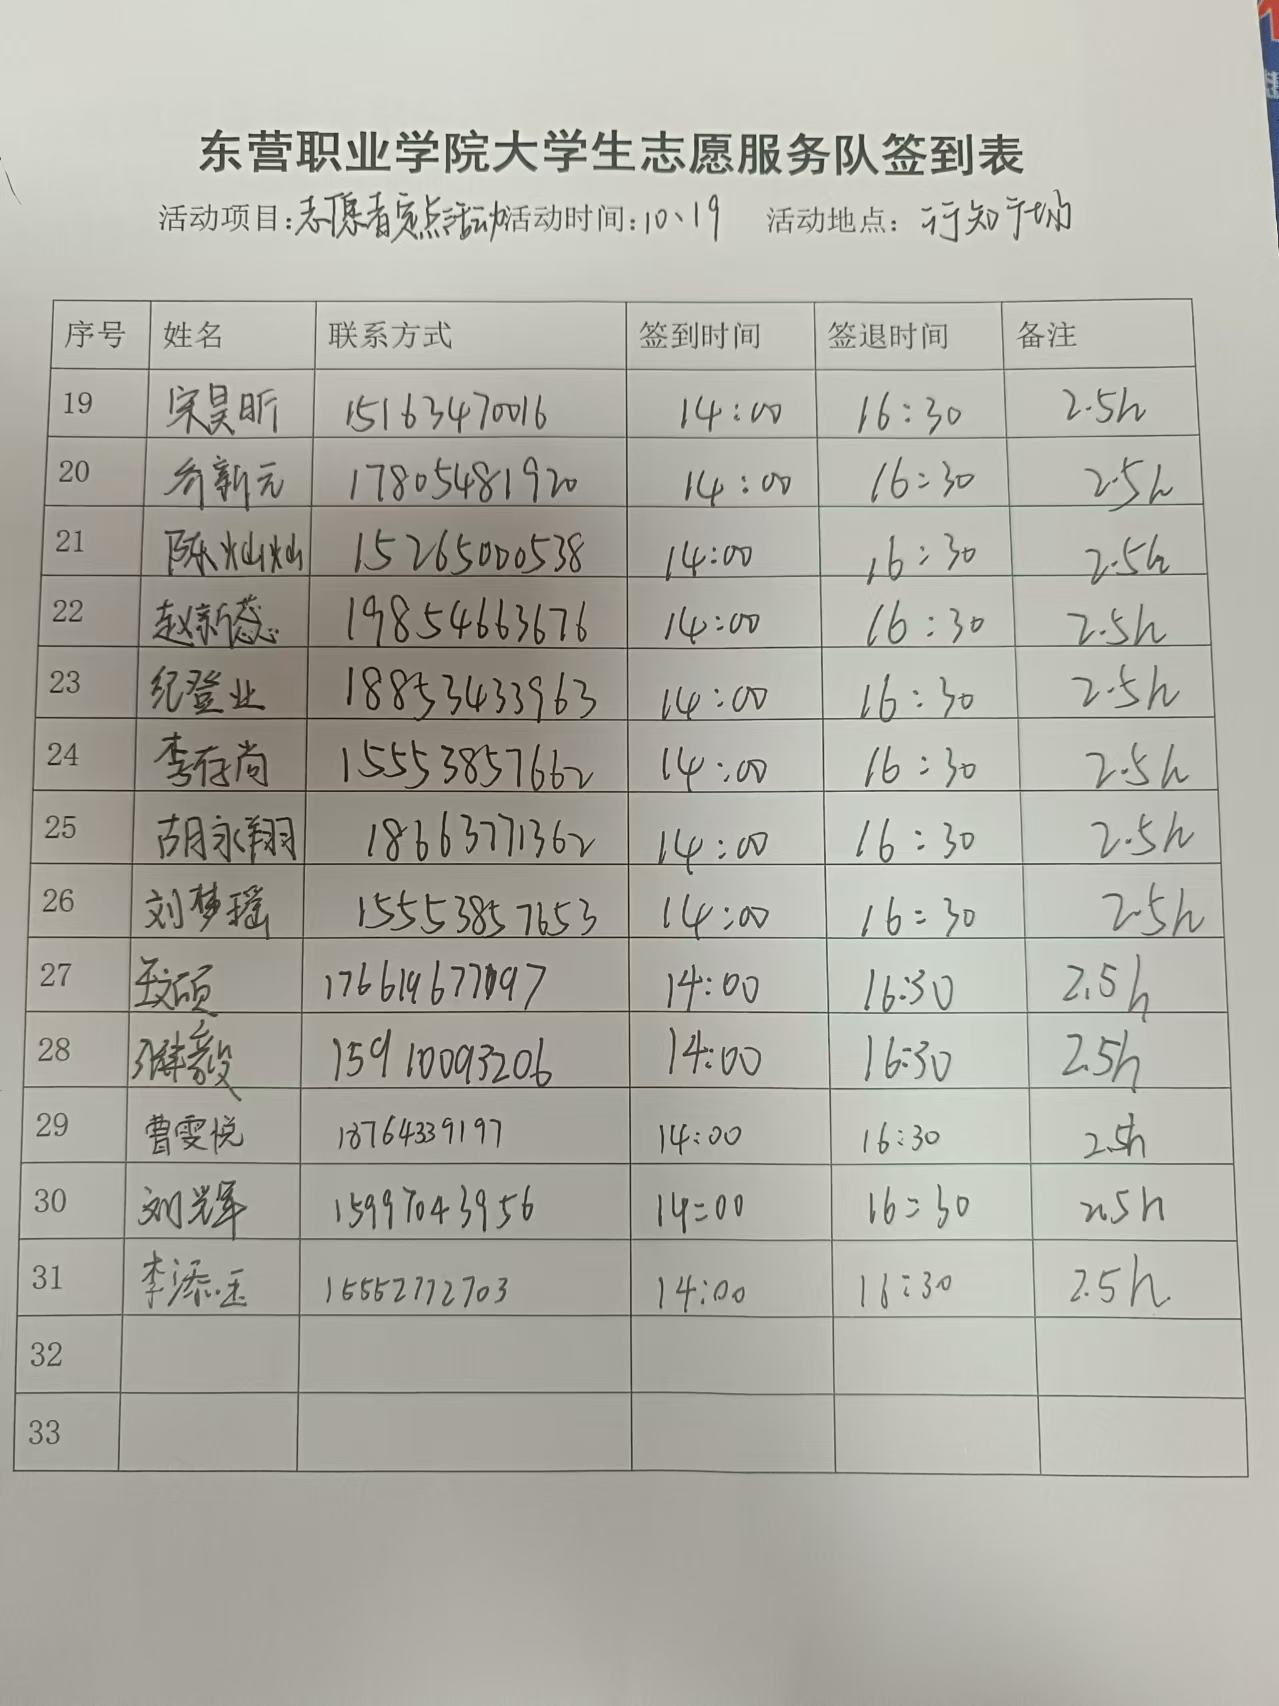 东营职业学院大学生志愿服务队签到表
活动项目:志愿者定点活动 活动时间:10、19 活动地点:行知广场
序号 姓名 联系方式 签到时间 签退时间 备注
19 宋昊昕 15163470016 14:00 16:30 2.5h
20 乔新元 17805481920 14:00 16:30 2.5h
21 陈灿灿 15265000538 14:00 16:30 2.5h
22 赵新蕊 19854663676 14:00 16:30 2.5h
23 纪登业 18853433963 14:00 16:30 2.5h
24 李存尚 15553857662 14:00 16:30 2.5h
25 胡永翔 18663771362 14:00 16:30 2.5h
26 刘梦瑶 15553857653 14:00 16:30 2.5h
27 王文硕 14:00 16:30 2.5h
28 15910093206 14:00 16:30 2.5h
29 曹雯悦 18764339197 14:00 16:30 2.5h
30 刘光军 15997043956 14:00 16:30 2.5h
31 李添玉 15552772703 14:00 16:30 2.5h
32
33